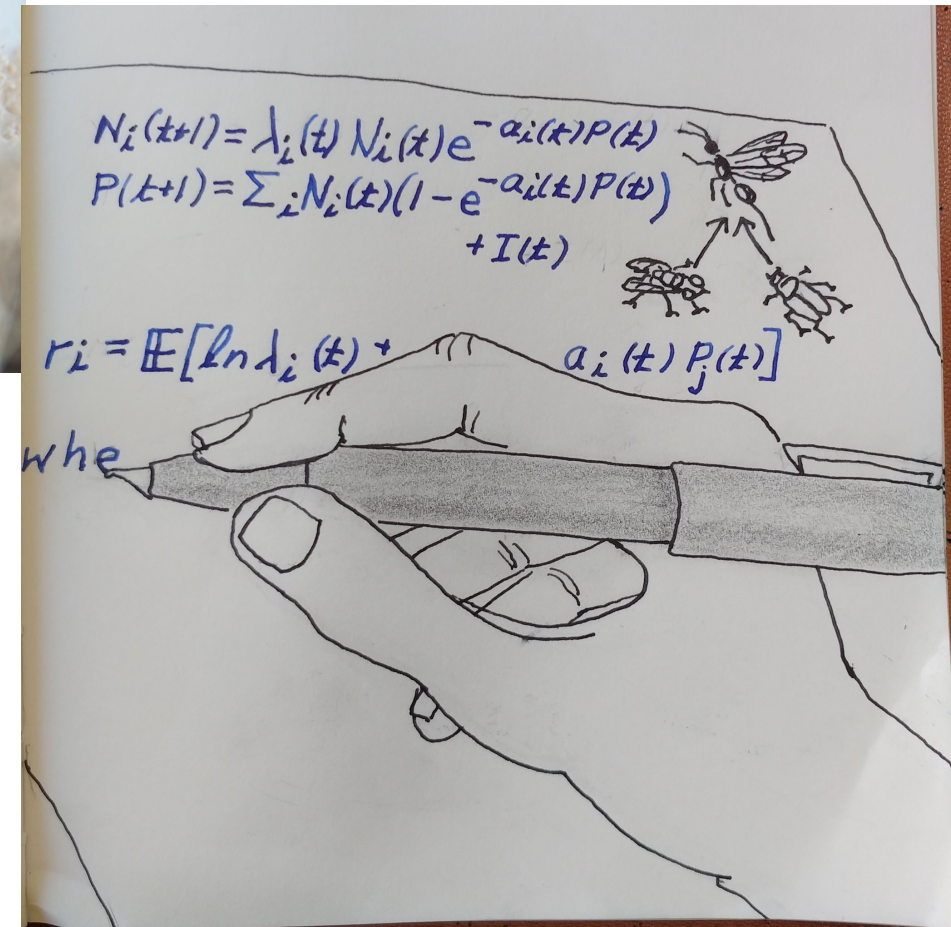 Nᵢ(t+1) = λᵢ(t) Nᵢ(t) e^{-aᵢ(t)P(t)}
P(t+1) = Σᵢ Nᵢ(t)(1 - e^{-aᵢ(t)P(t)})
+ I(t)
rᵢ = 𝔼[ln λᵢ(t) aᵢ(t) Pⱼ(t)]
whe